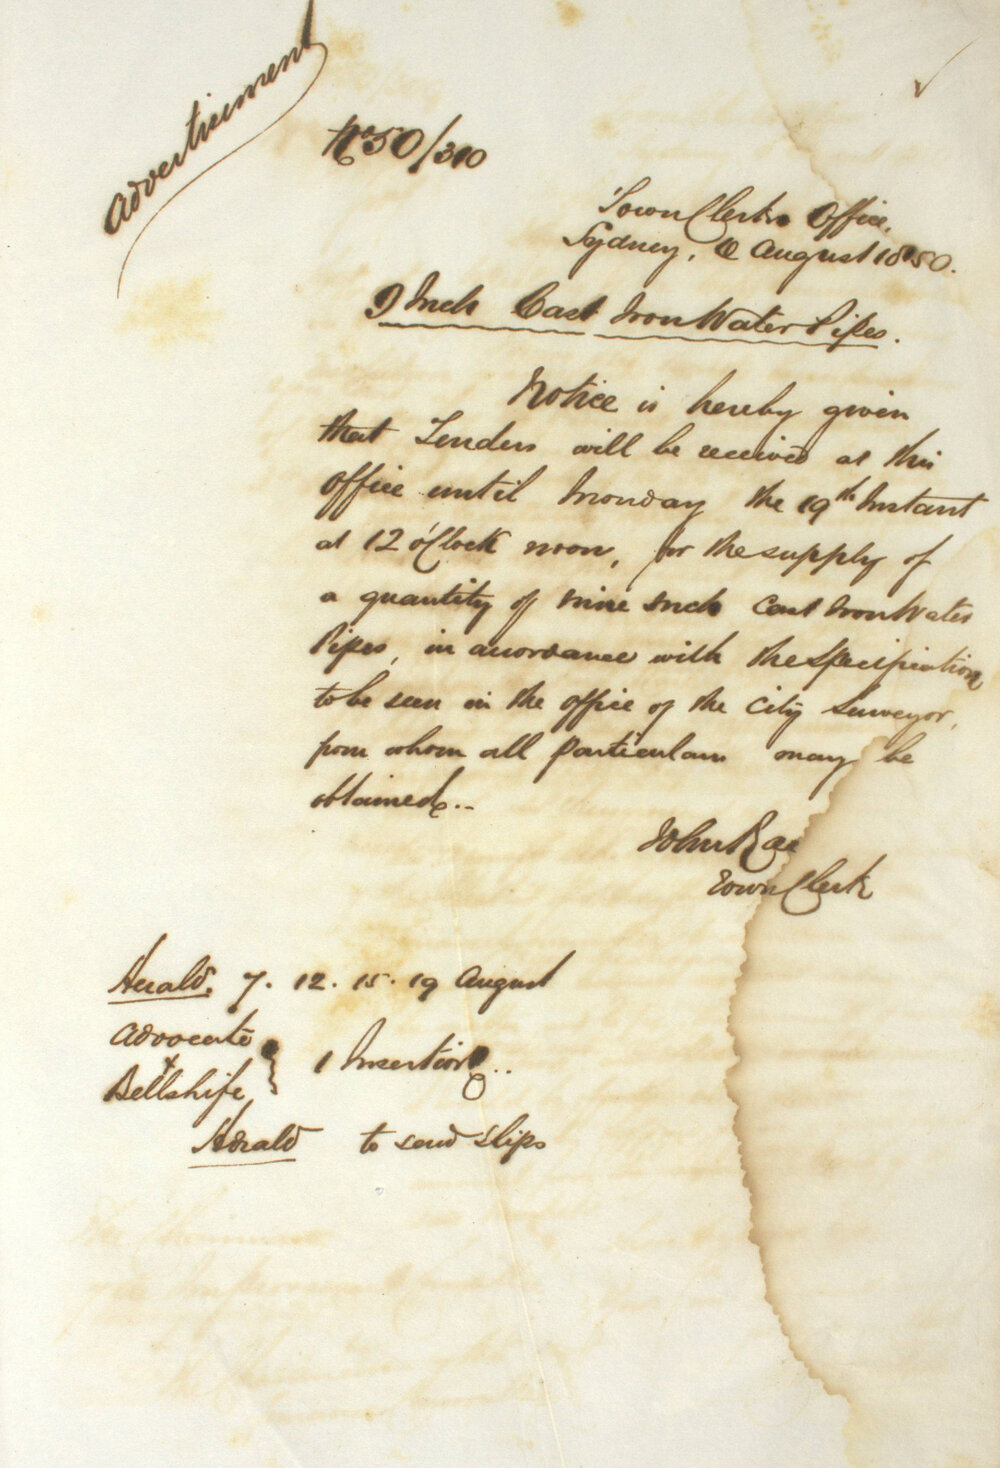 Advertisement
No 50/310
Town Clerks Office,
Sydney, 6 August 1850.
9 Inch Cast Iron Water Pipes.
Notice is hereby given
that Tenders will be received at this
Office until Monday the 19th Instant
at 12 o'Clock noon, for the supply of
a quantity of nine Inch Cast Iron Water
Pipes, in accordance with the Specification
to be seen in the office of the City Surveyor,
from whom all particulars may be
obtained..
John Rae
Town Clerk
Herald. 7. 12. 15. 19 August
Advocate
+
Bells life } 1 Insertion..
Herald to send slips